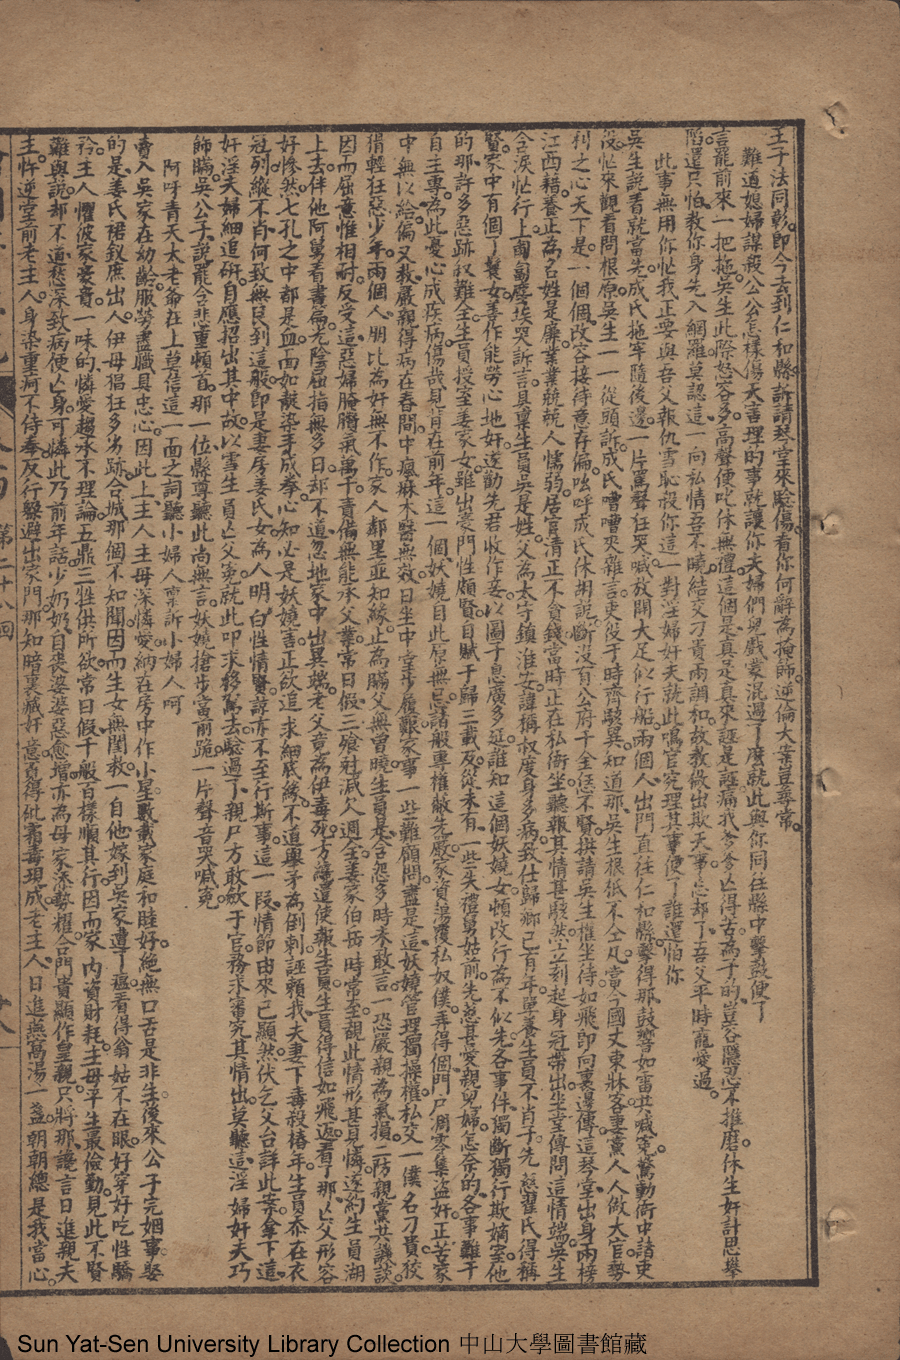 王子法同彰。即今去到仁和縣。訴請琴堂來驗傷。看你何辭為掩飾。逆倫大案豈尋常。
難道媳婦謀殺公公怎樣傷天害理的事就讓你夫婦們兒戲蒙混過了麼就此與你同往縣中擊鼓便了
言罷前來一把拖。吳生此際怒容多。高聲便叱休無禮。這個是真是真來誣是誣。痛我爹爹亡得苦。為子的豈容隱忍不推磨。休生奸計思舉
陷。還只怕教你身先入網羅。莫認這一向私情吾不曉。結交刁貴兩調和。故教做出欺天事。忘却了吾父平時寵愛過。
此事無用你忙我正要與吾父報仇雪恥殺你這一對淫婦奸夫就此鳴官究理其事便了誰還怕你
吳生說着就當先。成氏拖牢隨後邊。一片罵聲狂哭喊。放開大足似行船。兩個人出門直往仁和縣。擊得那鼓響如雷共喊冤。驚動衙中諸吏
役。忙來觀看問根原。吳生一一從頭訴。成氏嘈嘈夾雜言。吏役于時齊駭異。知道那吳生根柢不全凡。當今國丈東牀客。妻黨人人做大官。勢
利之心天下是。一個個改容接待意存偏。叱呼成氏休胡說。斷沒有公府千金恁不賢。拱請吳生權坐待。如飛即向裏邊傳。這琴堂出身兩榜
江西籍。養正為名姓是廉。業業兢兢人懦弱。居官清正不貪錢。當時正在私衙坐。聽報其情甚駭然。立刻起身冠帶出。坐堂傳問這情端。吳生
含淚忙行上。匍匐塵埃哭訴言。具稟生員吳是姓。父為太守鎮淮安。諱稱叔度身多病。致仕歸鄉已有年。單養生員不肖子。先慈翟氏得稱
賢。家中有個丫鬟女。善作能勞心地奸。遂勸先君收作妾。以圖子息廣多延。誰知這個妖嬈女。頓改行為不似先。各事件獨斷獨行欺嫡室。他
的那許多惡跡叙難全。生員授室姜家女。雖出豪門性頗賢。自賦于歸三載友。從未有一些失禮舅姑前。先慈甚愛親兒婦。怎奈的各事難干
自主專。為此憂心成疾病。傷哉見背在前年。這一個妖嬈自此原無忌。諸般專權蔽先嚴。家資蕩覆私奴僕。弄得個門戶凋零集盜奸。正苦家
中無以給。偏又教嚴親得病在春間。中瘋麻木醫無效。日坐中堂步履艱。家事一些難顧問。盡是這妖嬈管理獨操權。私交一僕名刁貴。狡
猾輕狂惡少年。兩個人朋比為奸無不作。家人鄰里並知緣。止為瞞父無曾曉。生員是含怨多時未敢言。一恐嚴親為氣損。二防親黨共議談。
因而屈意惟相耐。反受這惡婦腌臢氣萬千。責備無能承父業。常日假三飱祇減欠週全。姜家伯岳時常至。覩此情形甚見憐。遂約生員湖
上去。伴他阿舅看書篇。光陰屈指無多日。却不道忽地家中出異端。老父竟為伊毒死。方纔遣使報生員。生員得信如飛返。看了那亡父形容
好慘然。七孔之中都是血。面如靛染手成拳。心知必是妖嬈害。正欲追求細底緣。不道舉矛為倒刺。誣賴我夫妻下毒殺椿年。生員忝在衣
冠列。縱不肖何致無良到這般。即是妻房姜氏女。為人明白性情賢。諒亦不至行斯事。這一段情節由來已顯然。伏乞父台詳此案。拿下這
奸淫夫婦細追研。自應招出其中故。以雪生員亡父冤。就此叩求移駕去。驗過了親尸方敢歛。于官務求審究其情出。莫聽這淫婦奸夫巧
飾瞞。吳公子。說罷含悲重頓首。那一位縣尊聽此尚無言。妖嬈搶步當前跪。一片聲音哭喊冤。
阿呀青天大老爺在上莫信這一面之詞聽小婦人稟訴小婦人呵
賣入吳家在幼齡。服勞盡職具忠心。因此上主人主母深憐愛。納在房中作小星。數載家庭和睦好。絕無口舌是非生。後來公子完姻事。娶
的是姜氏裙釵庶出人。伊母猖狂多劣跡。合城那個不知聞。因而生女無閨教。一自他嫁到吳家遭了瘟。看得翁姑不在眼。好穿好吃性驕
矜。主人懼彼家豪貴。一味的憐愛趨承不理論。五鼎三牲供所欲。常日假千般百樣順其行。因而家內資財耗。主母平生最儉勤。見此不賢
難與說。却不道愁深致病便亡身。可憐此乃前年話。少奶奶自喪婆婆惡愈增。亦為母家添勢耀。合門貴顯作皇親。只將那讒言日進親夫
主。忤逆堂前老主人。身染重疴不侍奉。反行躲避出家門。那知暗裏藏奸意。買得砒霜毒現成。老主人。日進燕窩湯一盞。朝朝總是我當心。
第二十八回
Sun Yat-Sen University Library Collection 中山大學圖書館藏